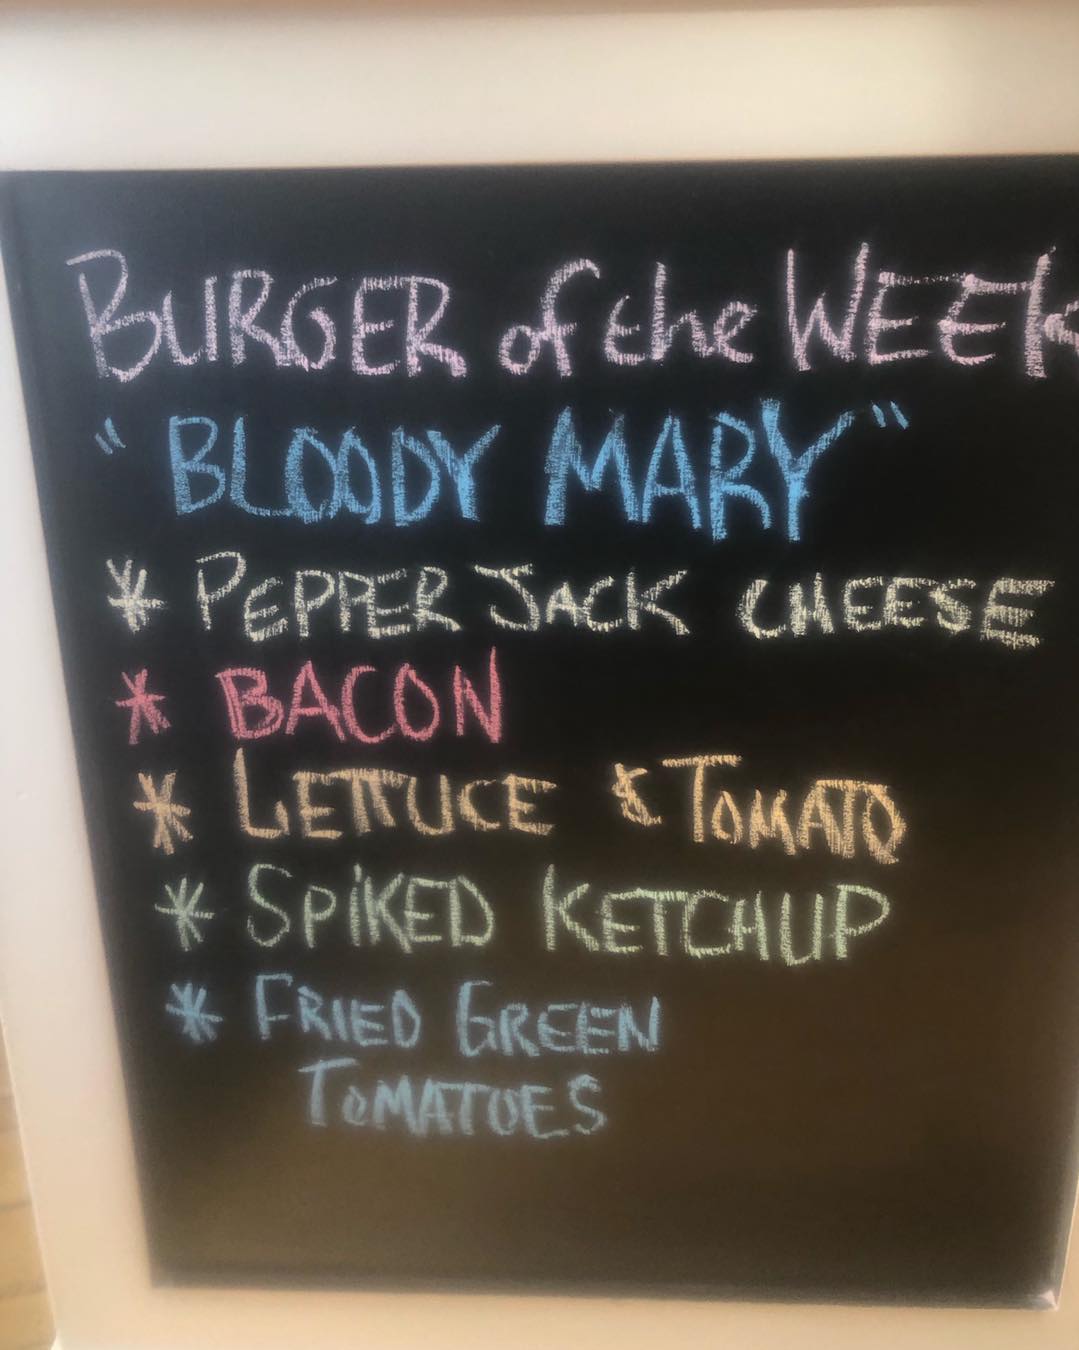 BURGER of the WEEK
"BLOODY MARY"
* PEPPER JACK CHEESE
* BACON
* LETTUCE & TOMATO
* SPiKED KETCHUP
* FRIED GREEN
TOMATOES